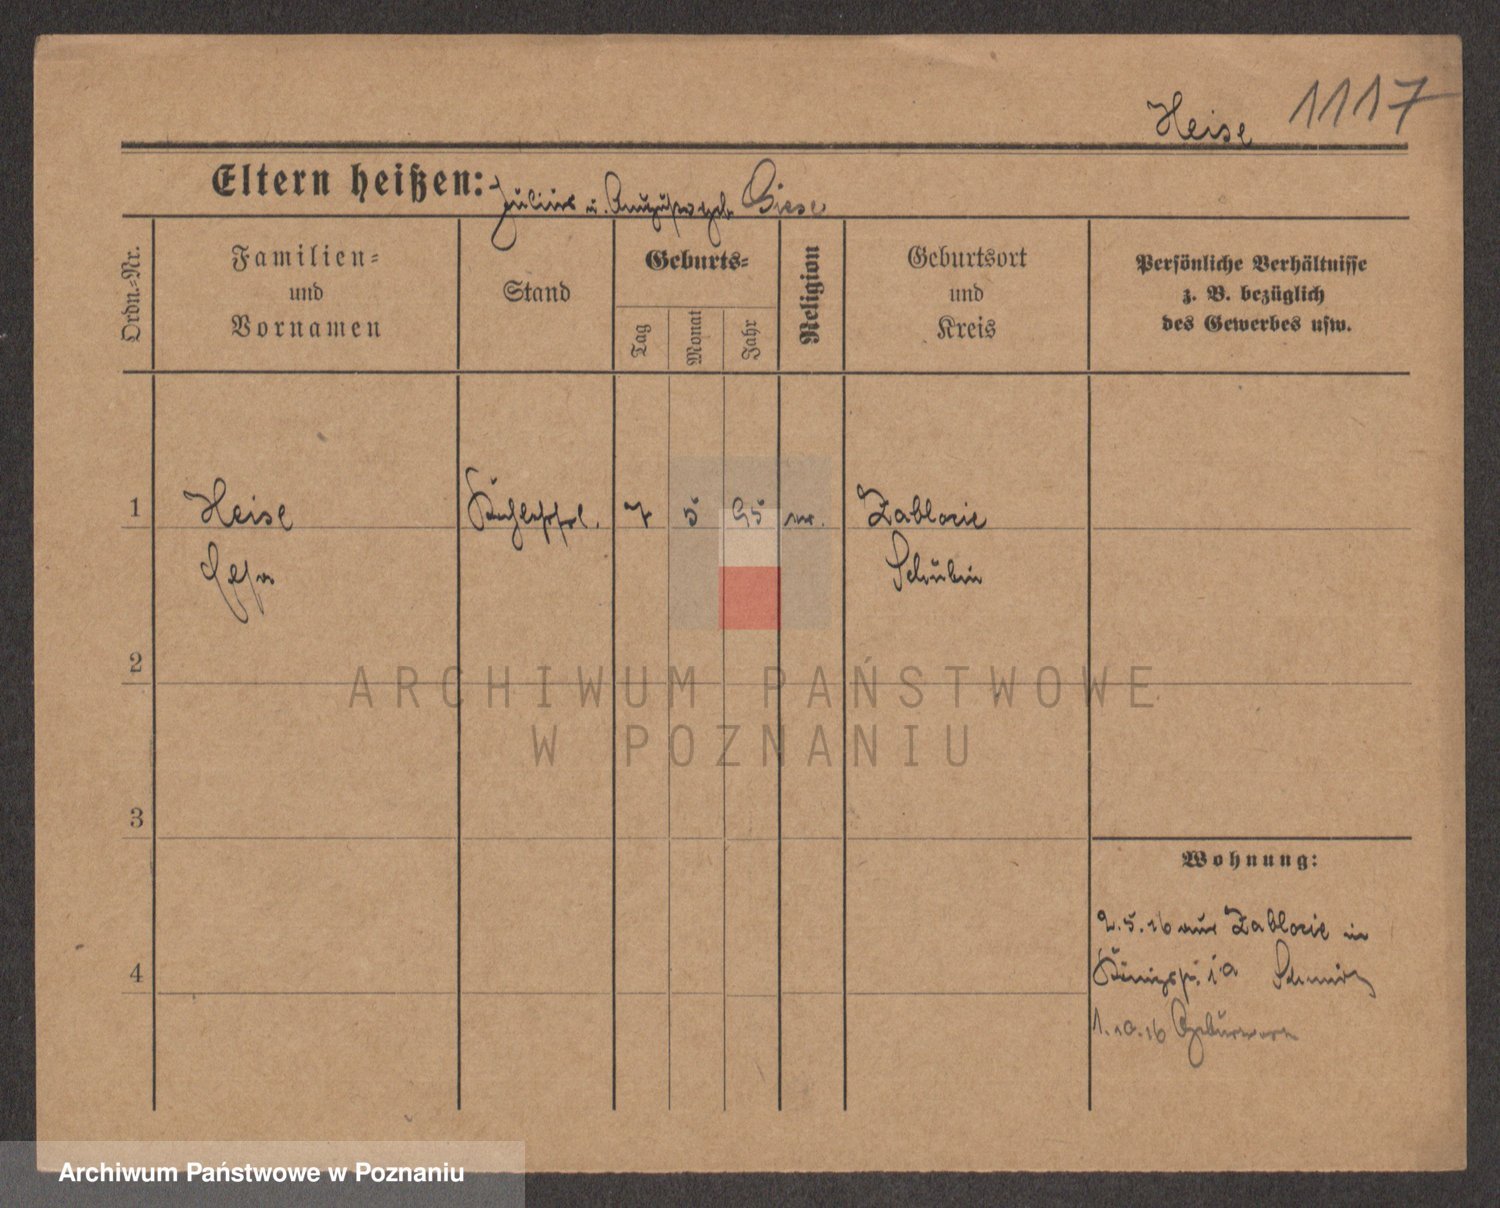 1117
Heise
Eltern heißen: Julius u. Auguste geb. Giese
Ordn.-Nr.
Familien-
und
Vornamen
Stand
Geburts-
Tag
Monat
Jahr
Religion
Geburtsort
und
Kreis
Persönliche Verhältnisse
z. B. bezüglich
des Gewerbes usw.
1 Heise 7 5 95 Zablocie
Schubin
2
ARCHIWUM PAŃSTWOWE
W POZNANIU
3
Wohnung:
2.5.16 aus Zablocie in
4
1.10.16
Archiwum Państwowe w Poznaniu